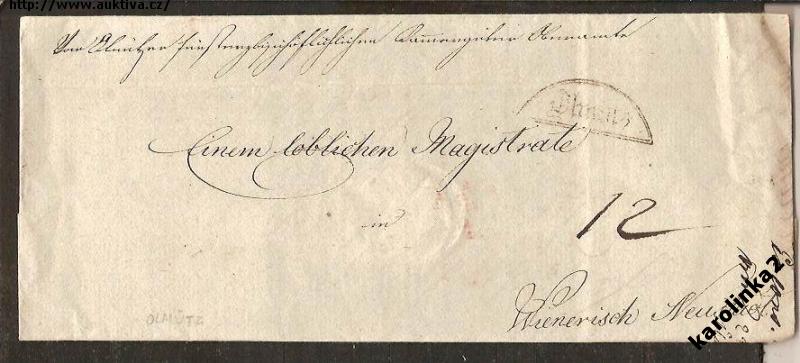 http://www.auktiva.cz/
Von Olmützer fürsterzbischöflichen Kammergüter Oberamte
Olmütz
Einem löblichen Magistrate
in
12
Wienerisch
OLMÜTZ
karolinka2